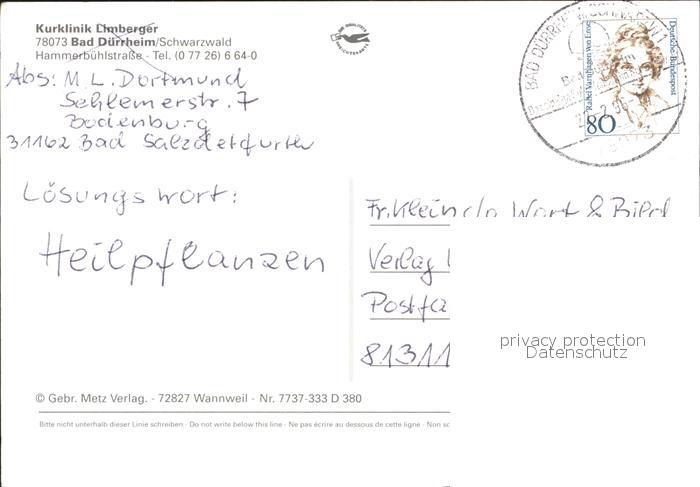 Kurklinik Limberger
78073 Bad Dürrheim/Schwarzwald
Hammerbühlstraße - Tel. (0 77 26) 6 64-0
Abs: M. L. Dortmund
Sehlemerstr. 7
Bodenburg
31162 Bad Salzdetfurth
Lösungswort:
Heilpflanzen
BAD DÜRRHEIM
Rahel Varnhagen von Ense
Deutsche Bundespost
80
Fr. Klein c/o Wort & Bild
Verlag
Postfa
81311
privacy protection
Datenschutz
© Gebr. Metz Verlag. - 72827 Wannweil - Nr. 7737-333 D 380
Bitte nicht unterhalb dieser Linie schreiben - Do not write below this line - Ne pas écrire au dessous de cette ligne - Non sc